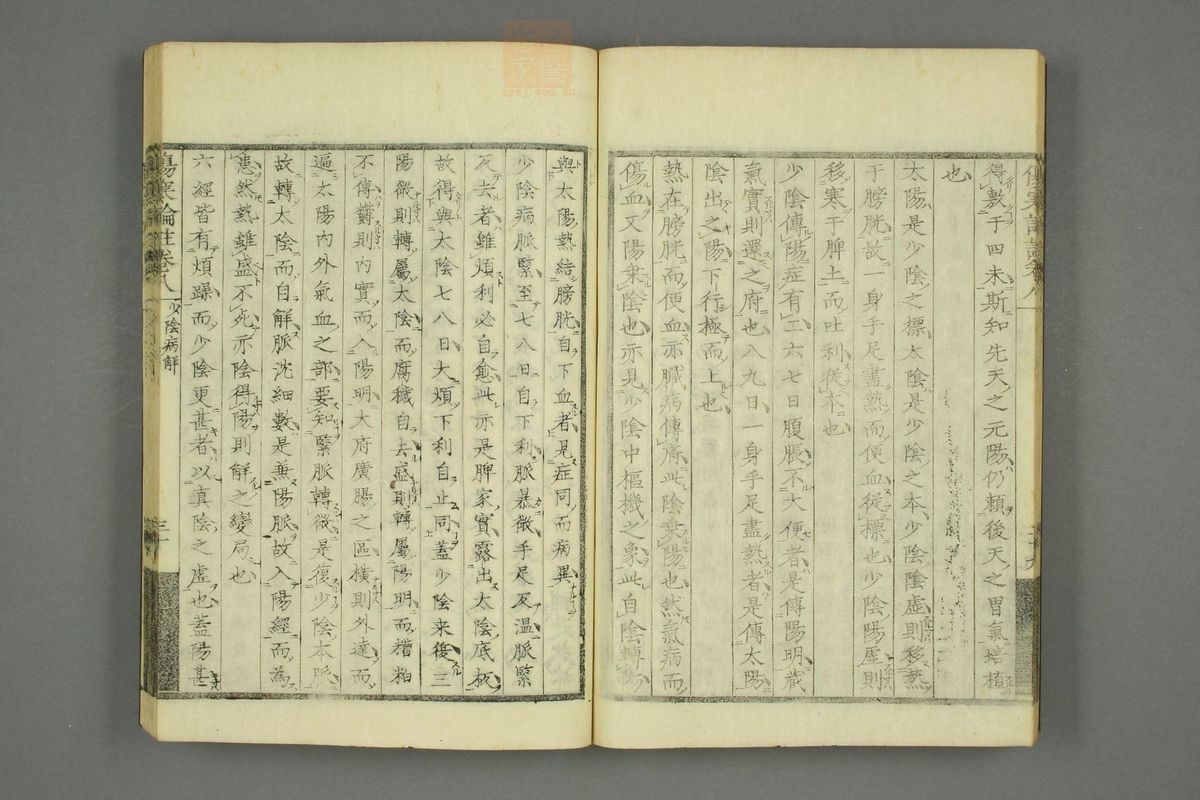 得敷于四末斯知先天之元陽仍賴後天之胃氣培植
也
太陽是少陰之標太陰是少陰之本少陰陰虛則移熱
于膀胱故一身手足盡熱而便血從標也少陰陽虛則
移寒于脾土而吐利從本也
少陰傳陽症有二六七日腹脹不大便者是傳陽明藏
氣實則還之府也八九日一身手足盡熱者是傳太陽
陰出之陽下行極而上也
熱在膀胱而便血亦臓病傳府此陰乘陽也然氣病而
傷血又陽乘陰也亦見少陰中樞機之象此自陰轉陽
與太陽熱結膀胱自下血者見症同而病異
少陰病脈緊至七八日自下利脈暴微手足反温脈緊
反去者雖煩利必自愈此亦是脾家實露出太陰底板
故得與太陰七八日大煩下利自止同蓋少陰来復三
陽微則轉屬太陰而腐穢自去盛則轉屬陽明而糟粕
不傳轉則内實而入陽明大府廣腸之區横則外達而
遍太陽内外氣血之部要知緊脈轉微是復少陰本脈
故轉太陰而自解脈沈細數是兼陽脈故入陽經而為
患然熱雖盛不死亦陰得陽則解之變局也
六經皆有煩躁而少陰更甚者以真陰之虛也蓋陽甚
傷寒論註卷八
少陰病解
三十
zysj.com.cn